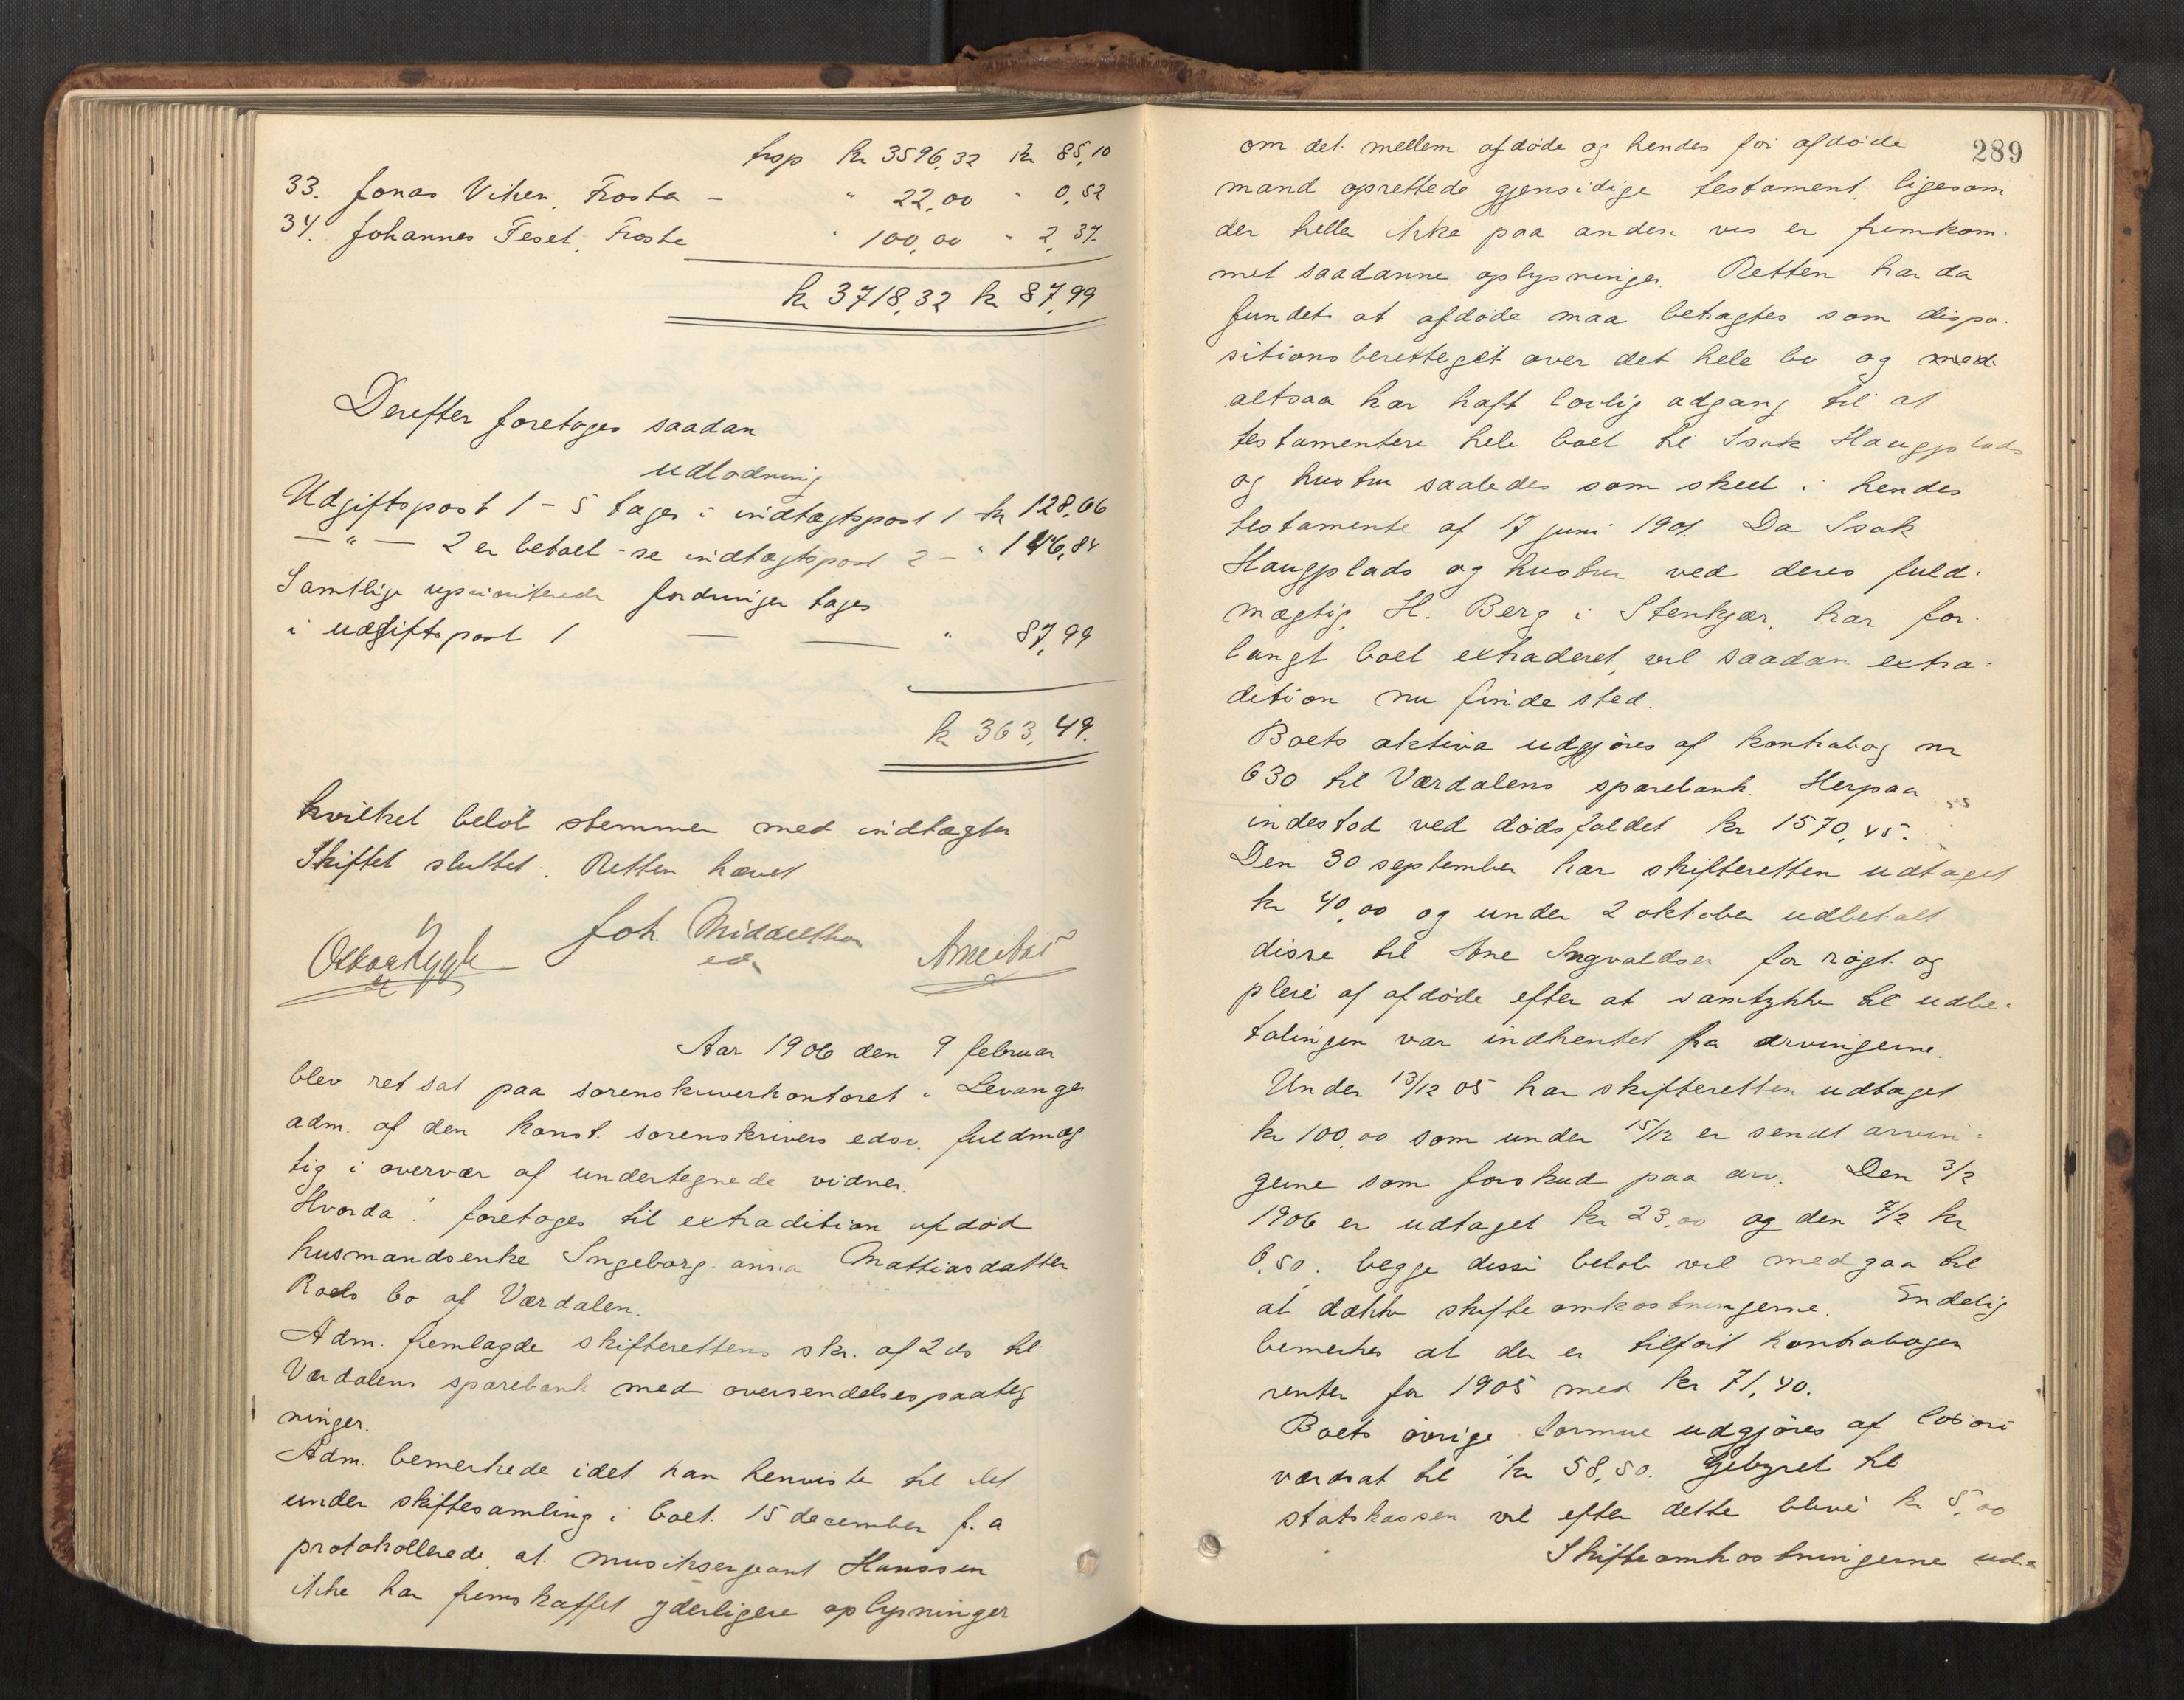 trsp kr 3596,32 kr 85,10
33. Jonas Viken, Frosta - " 22,00 " 0,52
34. Johannes Feset, Frosta " 100,00 " 2,37.
kr 3718,32 kr 87,99
Derefter foretages saadan
udlodning
Udgiftspost 1 - 5 tages i indtægtspost 1 kr 128,06
— " — 2 er betalt - se indtægtspost 2 - " 146,84
Samtlige uprioriterede fordringer tages
i udgiftspost 1 — — " 87,99
kr 363,49.
hvilket beløb stemmer med indtægten
Skiftet sluttet. Retten hævet
Joh. Middelthon
ed.
Aar 1906 den 9 februar
blev ret sat paa sorenskriverkontoret i Levanger
adm. af den konst. sorenskrivers edsv. fuldmæg
tig i overvær af undertegnede vidner.
Hvorda: foretages til extradition afdød
husmandsenke Ingeborg anna Mattiasdatter
Roels bo af Værdalen.
Adm. fremlagde skifterettens skr. af 2 ds til
Værdalens sparebank med oversendelsespaateg
ninger.
Adm. bemerkede idet han henviste til det
under skiftesamling i boet 15 december f. a
protokollerede, at musiksergeant Hanssen
ikke har fremskaffet yderligere oplysninger
289
om det mellem afdøde og hendes før afdøde
mand oprettede gjensidige testament, ligesom
der heller ikke paa anden vis er fremkom-
met saadanne oplysninger. Retten har da
fundet at afdøde maa betragtes som dispo-
sitionsberettiget over det hele bo og med
altsaa har haft lovlig adgang til at
testamentere hele boet til Isak Haugplads
og hustru saaledes som skeet i hendes
testamente af 17 juni 1901. Da Isak
Haugplads og hustru ved deres fuld-
mægtig, H. Berg i Stenkjær, har for-
langt boet extraderet, vil saadan extra-
dition nu finde sted.
Boets aktiva udgjøres af kontrabog nr
630 til Værdalens sparebank. Herpaa
indestod ved dødsfaldet kr 1570,45.
Den 30 september har skifteretten udtaget
kr 40,00 og under 2 oktober udbetalt
disse til Ane Ingvaldsen for røgt og
pleie af afdøde efter at samtykke til udbe-
talingen var indhentet fra arvingerne.
Under 13/12 05 har skifteretten udtaget
kr 100,00 som under 15/12 er sendt arvin-
gerne som forskud paa arv. Den 3/2
1906 er udtaget kr 23,00 og den 7/2 kr
6,50. begge disse beløb vil medgaa til
at dække skifteomkostningerne. Endelig
bemerkes at der er tilført kontrabogen
renter for 1905 med kr 71,40.
Boets øvrige formue udgjøres af løsøre
værdsat til kr 58,50. Gebyret til
statskassen vil efter dette blive kr 5,00
Skifteomkostningerne ud-